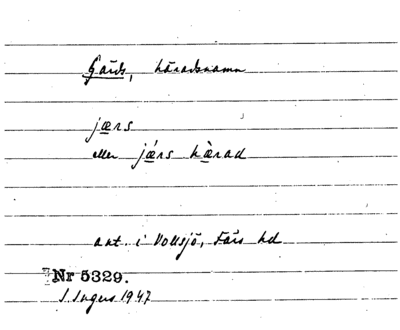 Gärds, häradsnamn
jærs
eller jǽrs hàrad
ant. i Vollsjö, Färs hd
Nr 5329.
I. Ingers 1947